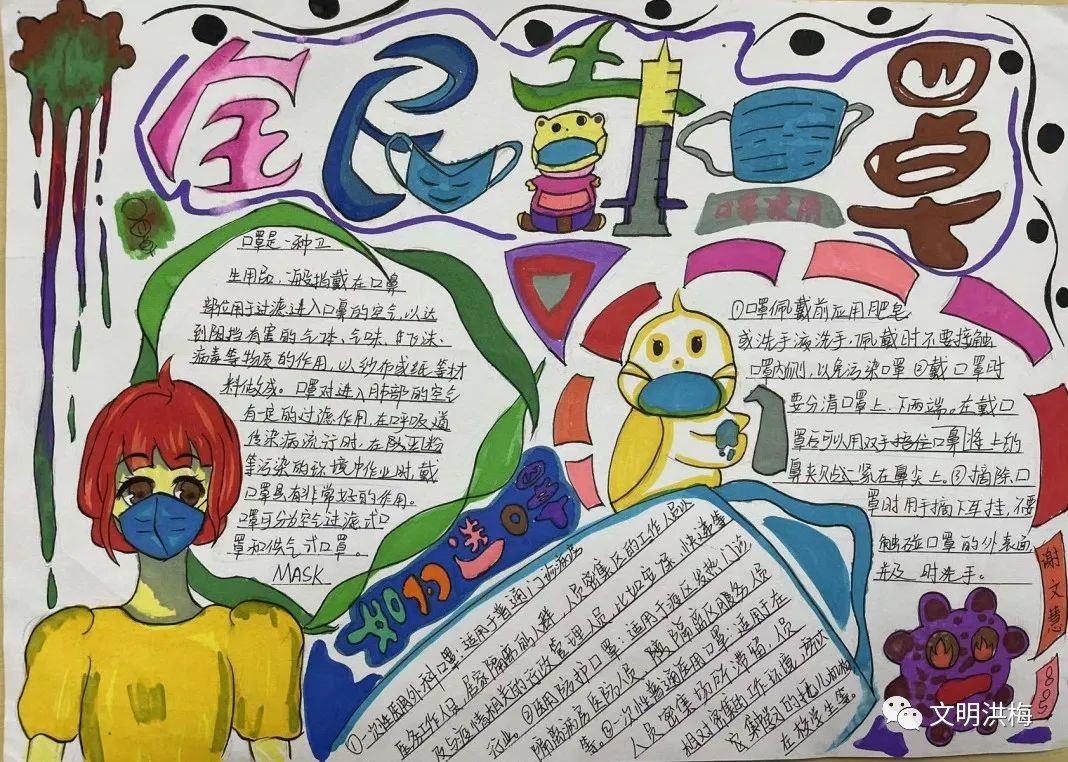 全民戴口罩
口罩使用
口罩是一种卫
生用品,一般指戴在口鼻
部位用于过滤进入口罩的空气,以达
到阻挡有害的气体、气味、飞沫、
病毒等物质的作用,以纱布或纸等材
料做成。口罩对进入肺部的空气
有一定的过滤作用,在呼吸道
传染病流行时,在
等污染的环境中作业时,戴
口罩具有非常好的作用。
口罩可分为空气过滤式口
罩和供气式口罩。
MASK
①口罩佩戴前应用肥皂
或洗手液洗手,佩戴时不要接触
口罩内侧,以免污染口罩②戴口罩时
要分清口罩上、下两端。在戴口
罩后可以用双手 住口罩将上的
鼻夹 紧在鼻尖上。③摘除口
罩时用手摘下耳挂,不要
触碰口罩的外表面,
并及时洗手。
如何选口罩
①一次性医用外科口罩:适用于普通门诊病房
医务工作人员,人员密集区的工作人员以
及与疫情相关的行政管理人员,
②医用防护口罩:适用于疫区发热门诊
隔离病房医务人员
等。③一次性普通医用口罩:适用于在
人员密集场所滞留,人员
相对密集的工作环境,
集学习的托儿机构
在校学生等。
谢文慧
885
文明洪梅